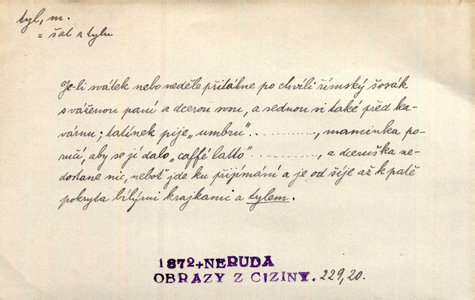 tyl, m.
= šat z tylu
Je-li svátek nebo neděle přitáhne po chvíli římský šosák
s váženou paní a dcerou svou, a sednou si také před ka-
várnu; tatínek pije „umbru“..............., maminka po-
ručí, aby se jí dalo „caffé latto“..............., a dceruška ne-
dostane nic, neboť jde ku přijímání a je od šíje až k patě
pokryta bílými krajkami a tylem.
1872+NERUDA
OBRAZY Z CIZINY. 229,20.